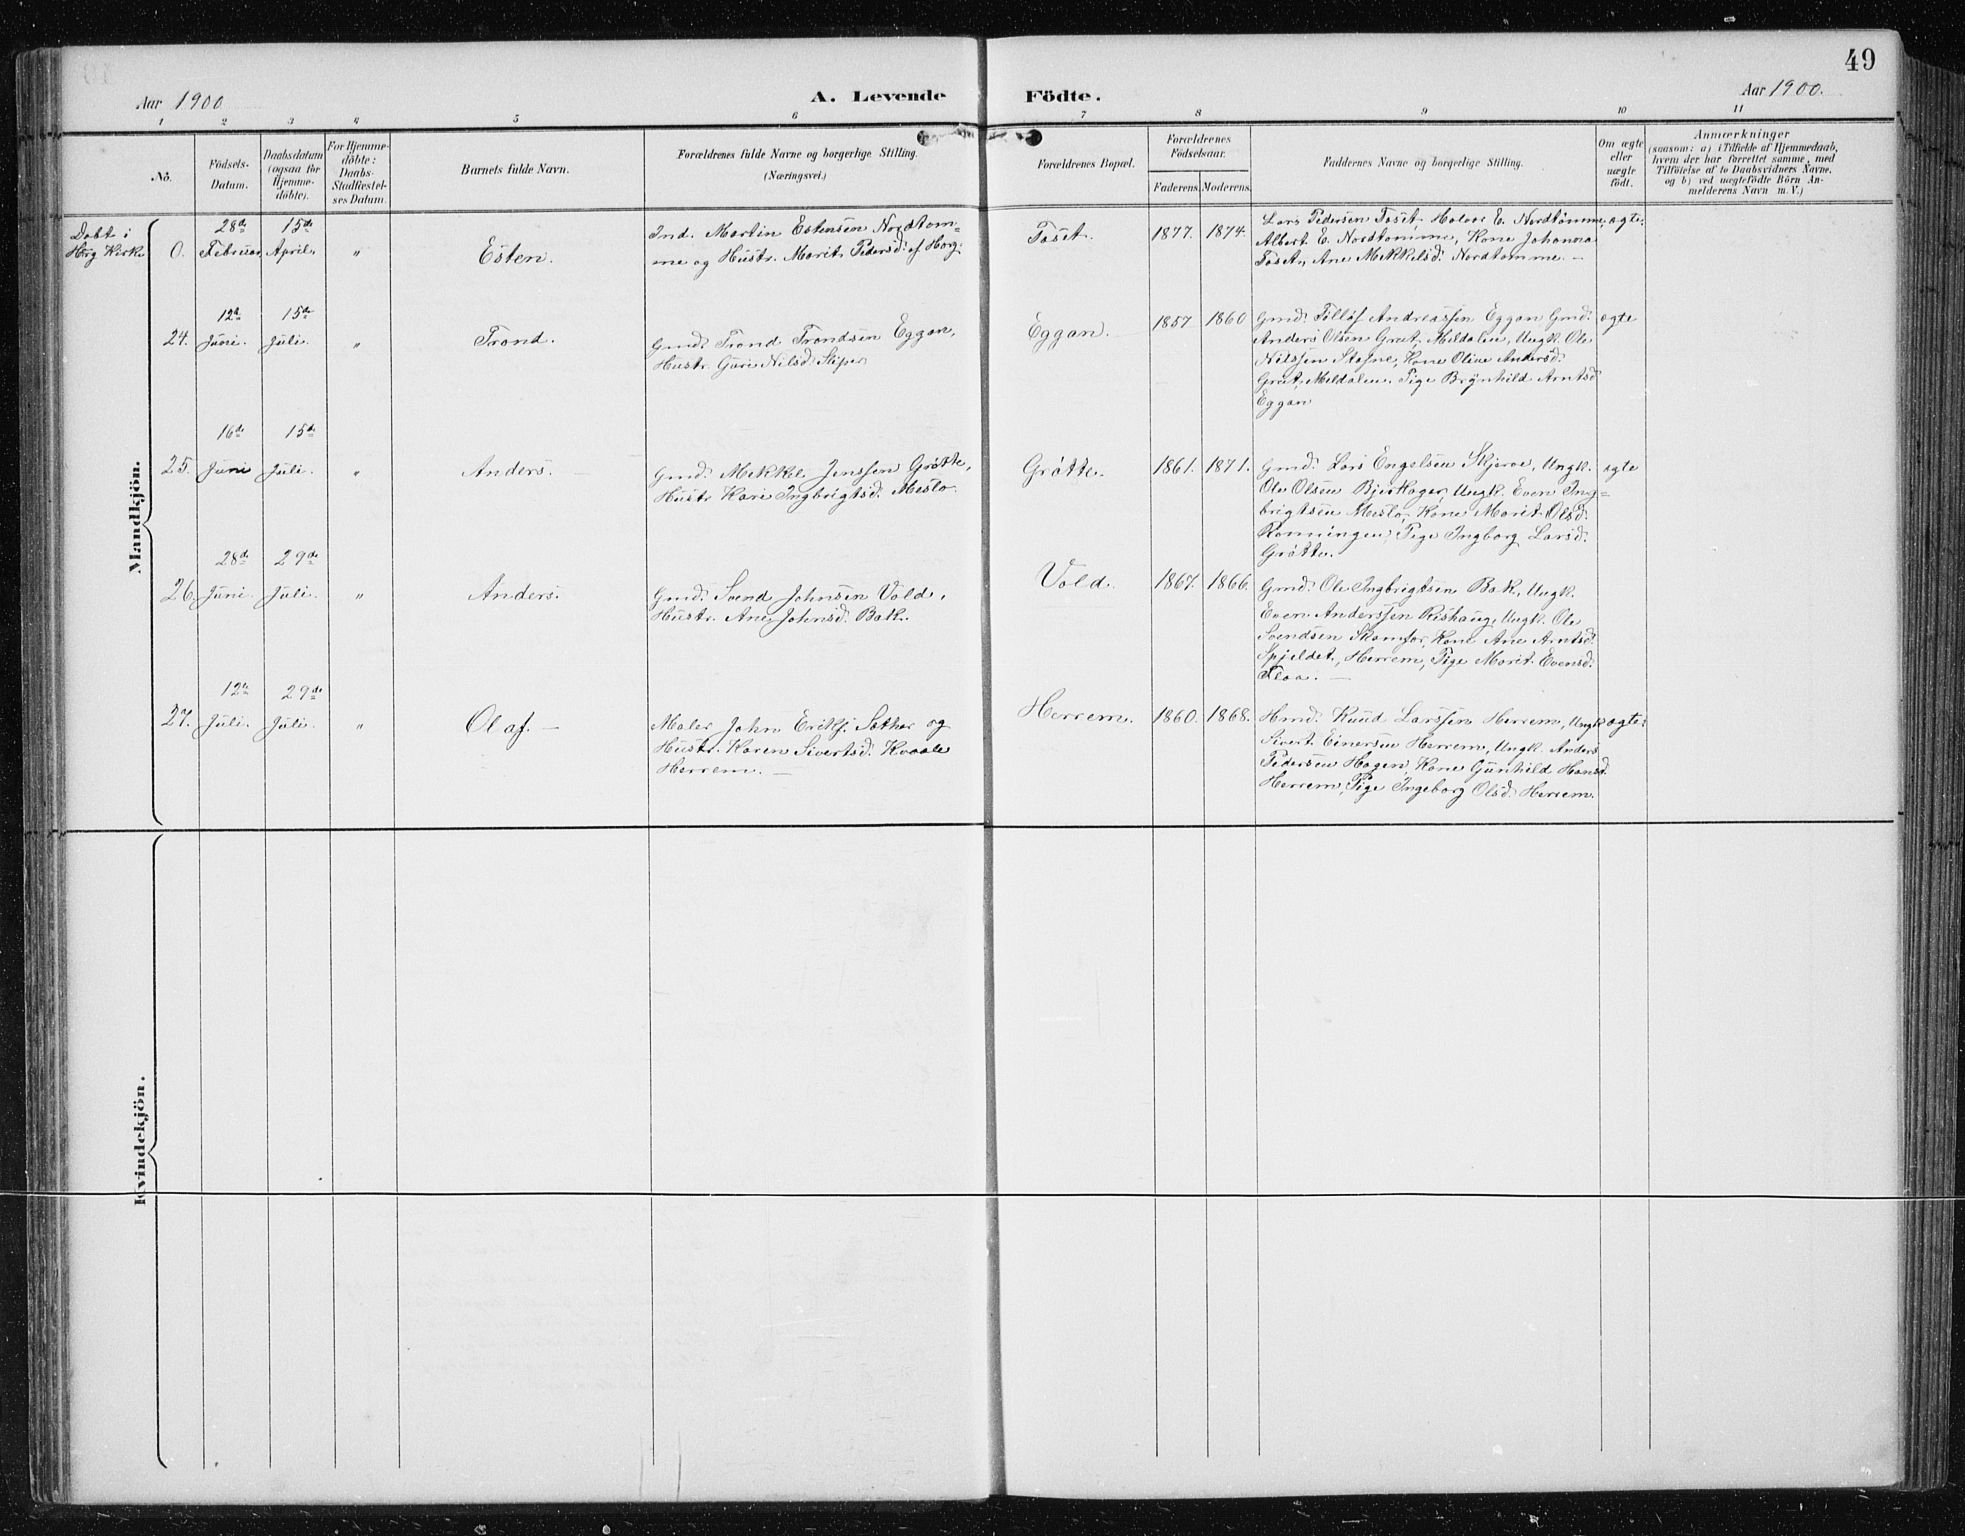 49
Aar 1900
A. Levende
Födte.
Aar 1900.
1 2 3 4 5 6 7 8 9 10 11
No.
Födsels-
Datum.
Daabsdatum
(ogsaa for
Hjemme-
döbte).
For Hjemme-
döbte:
Daabs-
Stadfæstel-
ses Datum.
Barnets fulde Navn.
Forældrenes fulde Navne og borgerlige Stilling.
(Næringsvei.)
Forældrenes Bopæl.
Forældrenes
Födselsaar.
Faderens. Moderens.
Faddernes Navne og borgerlige Stilling.
Om ægte
eller
uægte
födt.
Anmærkninger
(saasom: a) i Tilfælde af Hjemmedaab,
hvem der har forrettet samme, med
Tilföielse af to Daabsvidners Navne,
og b) ved uægtefödte Börn An-
melderens Navn m. V.)
Mandkjön.
Døbt i
Hørg Kirke
0.
28de
Februar
15de
April.
"
Esten.
Ind. Martin Estensen Nordtøm=
me og Hustr. Marit Pedersd. af Horg.
Foset.
1877. 1874.
Lars Pedersen Foset, Halvor E. Nordtømme,
Albert E. Nordtømme, Kone Johanna
Foset, Ane Mekkelsd. Nordtømme. —
ægte.
24.
12te
Juni
15de
Juli.
"
Trond.
Gmd. Trond Trondsen Eggan,
Hustr. Guri Nilsd.
Eggan.
1857 1860
Gmd. Andreassen Eggan Gmd.
Anders Olsen Grut, Meldalen, Ungk. Ole
Nilssen Kone Oline Andersd.
Grut, Meldalen. Pige Brynhild Arntsd.
Eggan
ægte
25.
16de
Juni
15de
Juli.
"
Anders.
Gmd. Mekkel Jenssen Grøtte,
Hustr. Kari Ingbrigtsd. Meslo.
Grøtte.
1861. 1871.
Gmd. Lars Engelsen Skjerve, Ungk.
Ole Olsen Bjerkager, Ungk. Even Ing=
brigtsen Meslo, Kone Marit Olsd.
Rønningen, Pige Ingborg Larsd.
Grøtte.
ægte
26.
28de
Juni
29de
Juli.
"
Anders.
Gmd. Svend Johnsen Vold,
Hustr. Ane Johnsd. Bak.
Vold.
1867. 1866.
Gmd. Ole Ingbrigtsen Bak, Ungk.
Even Anderssen Rishaug, Ungk. Ole
Svendsen Skamfer, Kone Ane Arntsd.
Spjeldet, Herrem, Pige Marit Evensd.
Floa. —
27.
12te
Juli.
29de
Juli.
"
Olaf. —
Maler John Eriks. Sæther og
Hustr. Karen Sivertsd. Kvaale
Herrem. —
Herrem.
1860. 1868.
Hmd. Knud Larssen Herrem, Ungk.
Sivert Einersen Herrem, Ungk. Anders
Pedersen Hagen, Kone Gunhild Hansd.
Herrem, Pige Ingeborg Olsd. Herrem.
ægte.
Kvindekjön.